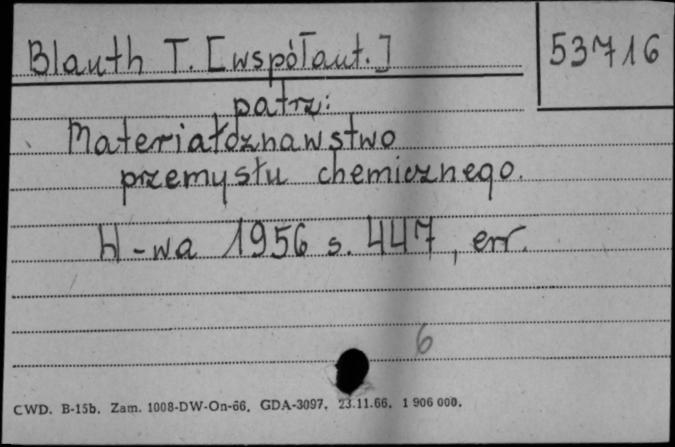 Blauth T. [współaut.]
53716
patrz:
Materiałoznawstwo
przemysłu chemicznego.
W-wa 1956 s. 447, err.
6
CWD. B-15b. Zam. 1008-DW-On-66. GDA-3097. 23.11.66. 1 906 000.